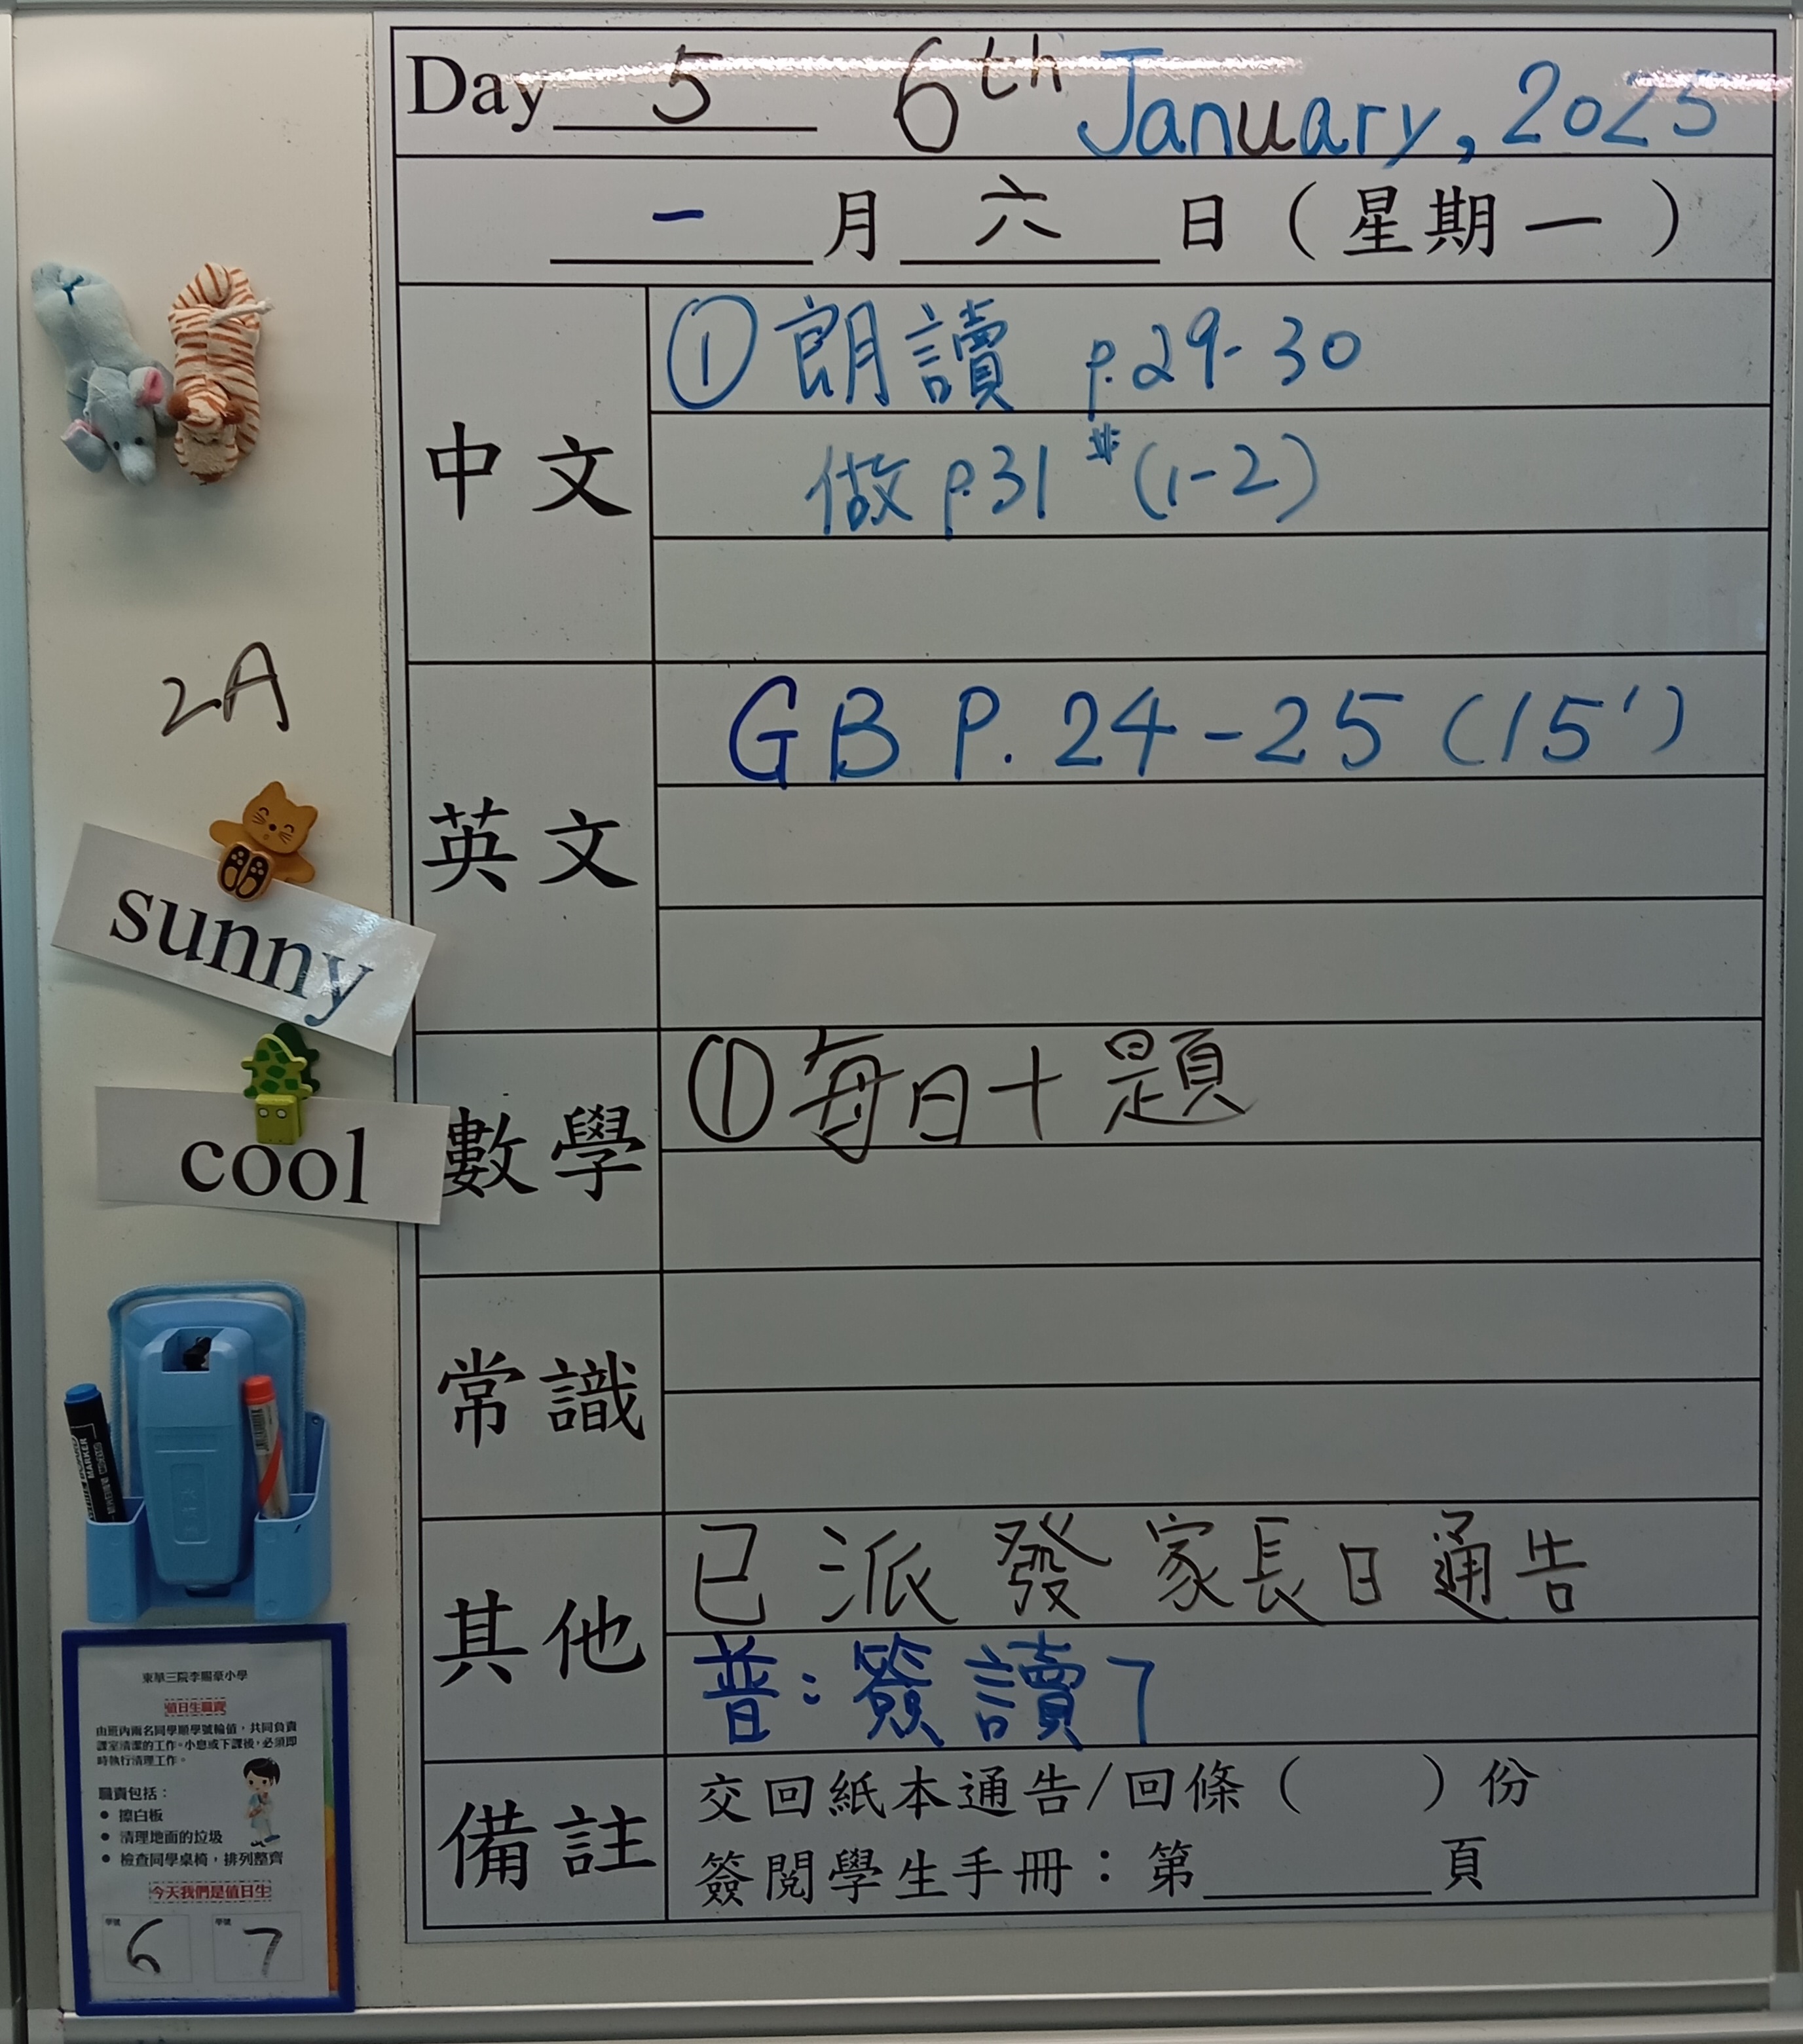 Day 5 6th January, 2025
一月六日（星期一）
中文
① 朗讀 p.29-30
做 p.31 # (1-2)
英文
GB P. 24-25 (15')
數學
① 每日十題
常識
其他
已派發家長日通告
普：簽讀7
備註
交回紙本通告/回條（ ）份
簽閱學生手冊：第____頁
2A
sunny
cool
MARKER
東華三院李賜豪小學
值日生職責
由班內兩名同學順學號輪值，共同負責
課室清潔的工作。小息或下課後，必須即
時執行清理工作。
職責包括：
● 擦白板
● 清理地面的垃圾
● 檢查同學桌椅，排列整齊
今天我們是值日生
學號 學號
6 7